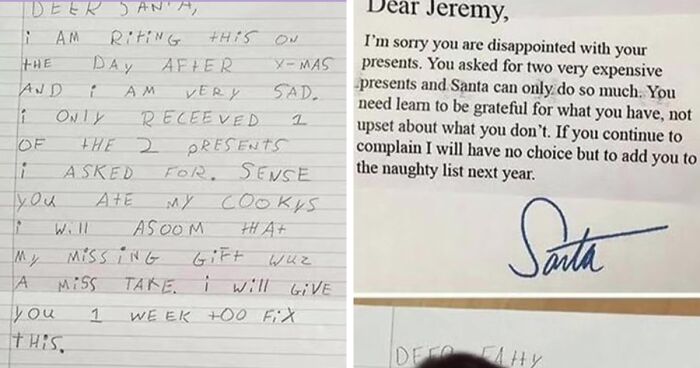 DEER SANTA,
i AM RitiNG tHiS ON
tHE DAY AFtER X-MAS
AND i AM VERY SAD.
i ONLY RECEEVED 1
OF tHE 2 pRESENtS
i ASKED FOR. SENSE
you AtE My COOKYS
i Will ASOOM tHAt
My MiSSiNG GiFt WUZ
A MiSS TAKE. i Will GiVE
you 1 WEEK tOO FiX
tHiS.
Dear Jeremy,
I'm sorry you are disappointed with your
presents. You asked for two very expensive
presents and Santa can only do so much. You
need learn to be grateful for what you have, not
upset about what you don't. If you continue to
complain I will have no choice but to add you to
the naughty list next year.
Santa
DEER FAttY